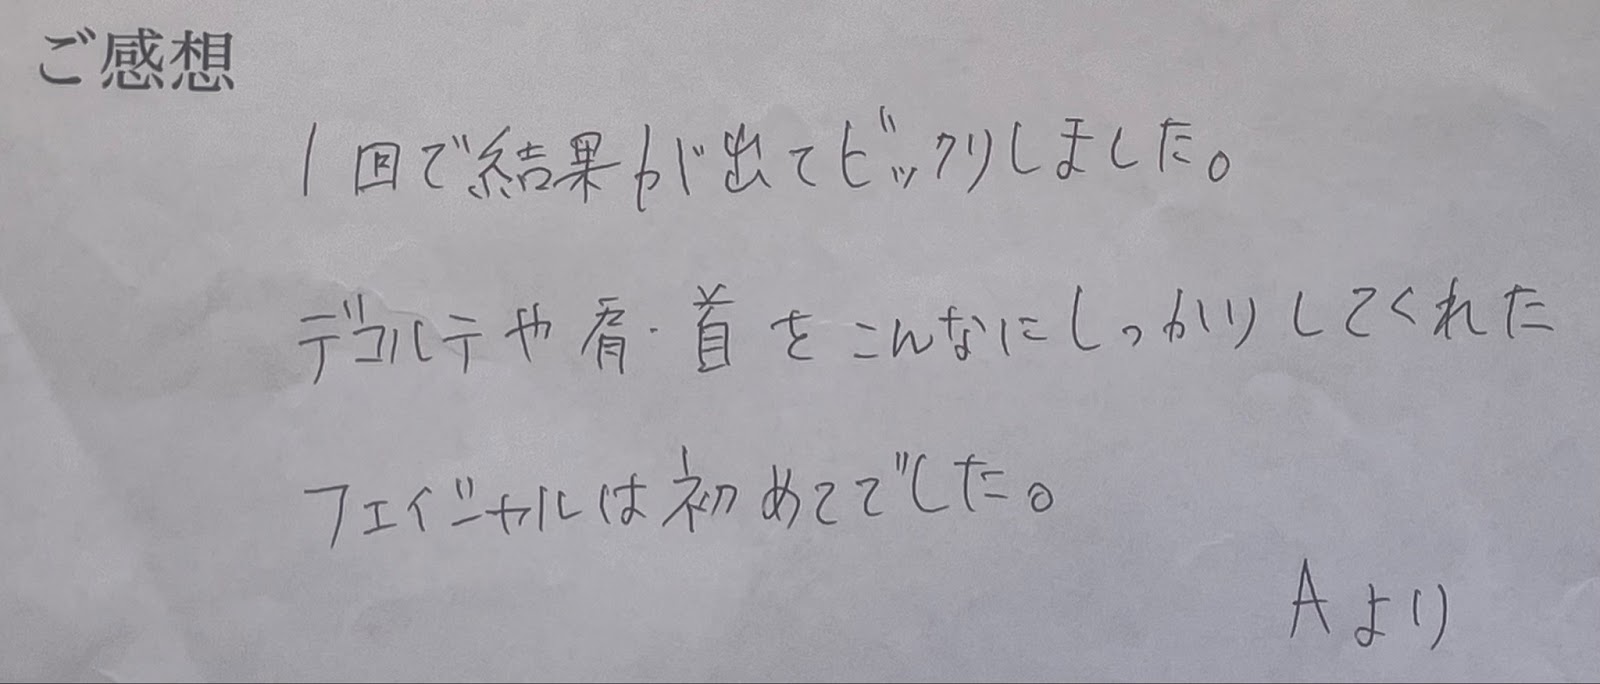 ご感想
1回で結果が出てビックリしました。
デコルテや肩・首をこんなにしっかりしてくれた
フェイシャルは初めてでした。
Aより